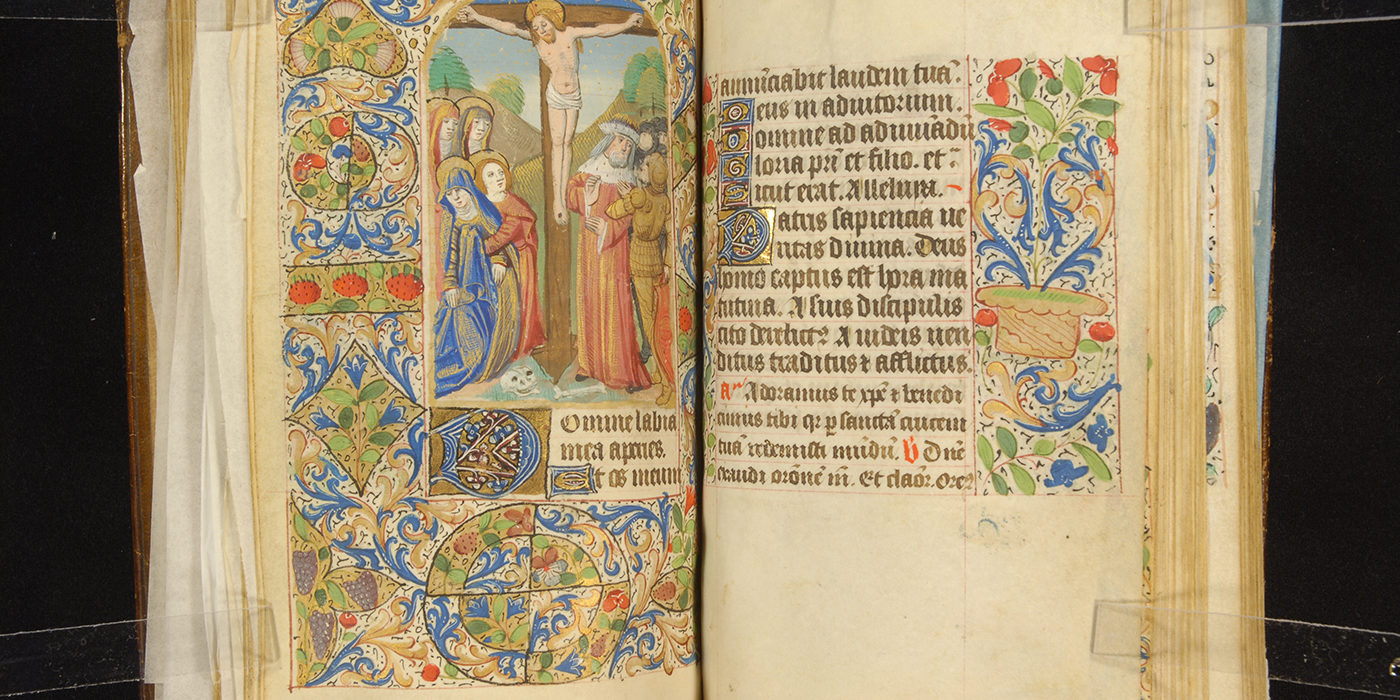 Omine labia
mea aperies.
Et os meum
annūciabit laudem tuā.
Deus in adiutorium.
Domine ad adiuuādū
Gloria pr̄i et filio. et
Sicut erat. Alleluia.
Patris sapiencia ue
ritas diuina. Deus
homo captus est hora ma
tutina. A suis discipulis
cito derelictꝰ A iudeis uen
ditus traditus ⁊ afflictus.
a᷑ Adoramus te xp̄e ⁊ benedi
cimus tibi qr p sanctā crucem
tuā redemisti mūdū. ℣ Dn̄e
exaudi orōnem m̄. Et clāor. Orem